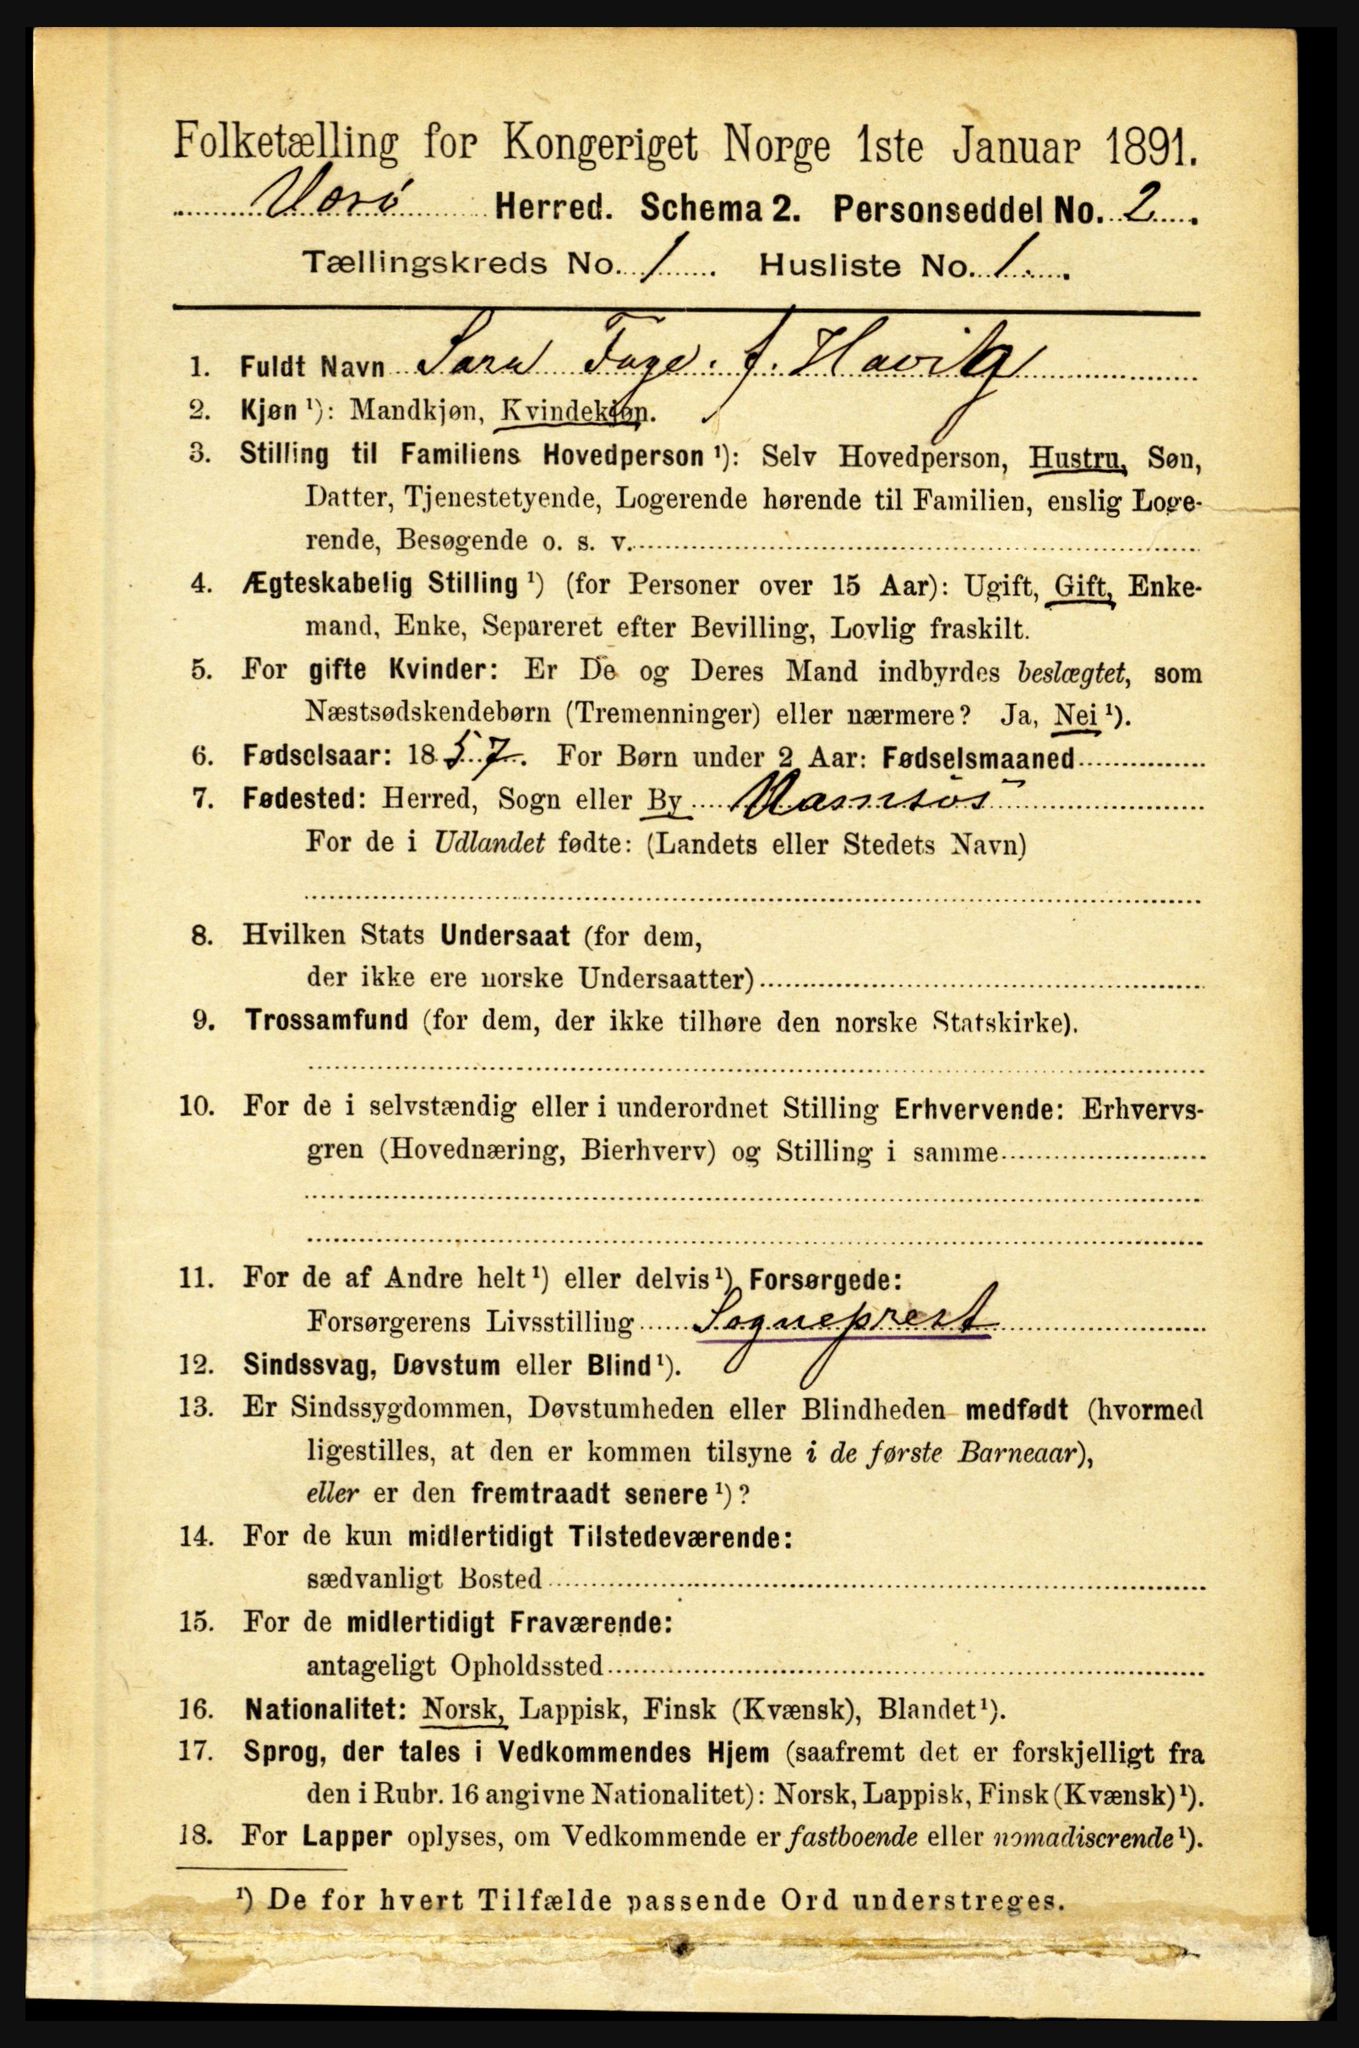 Folketælling for Kongeriget Norge 1ste Januar 1891.
Værø Herred. Schema 2. Personseddel No. 2.
Tællingskreds No. 1. Husliste No. 1.
1. Fuldt Navn Sara Fage. f. Havig
2. Kjøn ¹): Mandkjøn, Kvindekjøn.
3. Stilling til Familiens Hovedperson ¹): Selv Hovedperson, Hustru, Søn,
Datter, Tjenestetyende, Logerende hørende til Familien, enslig Loge-
rende, Besøgende o. s. v.
4. Ægteskabelig Stilling ¹) (for Personer over 15 Aar): Ugift, Gift, Enke-
mand, Enke, Separeret efter Bevilling, Lovlig fraskilt.
5. For gifte Kvinder: Er De og Deres Mand indbyrdes beslægtet, som
Næstsødskendebørn (Tremenninger) eller nærmere? Ja, Nei ¹).
6. Fødselsaar: 1857. For Børn under 2 Aar: Fødselsmaaned
7. Fødested: Herred, Sogn eller By Namsos
For de i Udlandet fødte: (Landets eller Stedets Navn)
8. Hvilken Stats Undersaat (for dem,
der ikke ere norske Undersaatter)
9. Trossamfund (for dem, der ikke tilhøre den norske Statskirke).
10. For de i selvstændig eller i underordnet Stilling Erhvervende: Erhvervs-
gren (Hovednæring, Bierhverv) og Stilling i samme
11. For de af Andre helt ¹) eller delvis ¹) Forsørgede:
Forsørgerens Livsstilling Sogneprest
12. Sindssvag, Døvstum eller Blind ¹).
13. Er Sindssygdommen, Døvstumheden eller Blindheden medfødt (hvormed
ligestilles, at den er kommen tilsyne i de første Barneaar),
eller er den fremtraadt senere ¹)?
14. For de kun midlertidigt Tilstedeværende:
sædvanligt Bosted
15. For de midlertidigt Fraværende:
antageligt Opholdssted
16. Nationalitet: Norsk, Lappisk, Finsk (Kvænsk), Blandet ¹).
17. Sprog, der tales i Vedkommendes Hjem (saafremt det er forskjelligt fra
den i Rubr. 16 angivne Nationalitet): Norsk, Lappisk, Finsk (Kvænsk) ¹).
18. For Lapper oplyses, om Vedkommende er fastboende eller nomadiserende ¹).
¹) De for hvert Tilfælde passende Ord understreges.